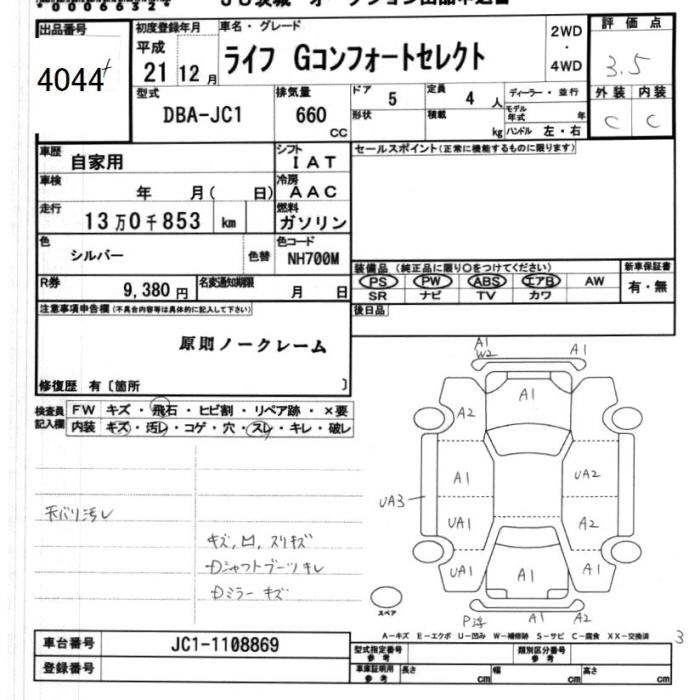 00066324
出品番号
4044
初度登録年月
平成
21 12月
車名・グレード
ライフ Gコンフォートセレクト
2WD
・
4WD
評価点
3.5
外装 内装
C C
型式
DBA-JC1
排気量
660
CC
ドア 5
形状
定員 4 人
積載 kg
ディーラー・並行
モデル年式 年
ハンドル 左・右
車歴 自家用
シフト IAT
車検 年 月( 日)
冷房 AAC
走行 13万0千853 km
燃料 ガソリン
色 シルバー 色替
色コード NH700M
R券 9,380円
名変通知期限 月 日
セールスポイント(正常に機能するものに限ります)
装備品(純正品に限り○をつけてください)
新車保証書
PS PW ABS エアB AW
SR ナビ TV カワ
有・無
後日品
注意事項申告欄(不具合内容等は具体的に記入して下さい)
原則ノークレーム
修復歴 有〔箇所 〕
検査員記入欄
FW キズ・飛石・ヒビ割・リペア跡・×要
内装 キズ・汚レ・コゲ・穴・スレ・キレ・破レ
天バリ汚レ
キズ,凹,スリキズ
Dシャフトブーツキレ
Dミラーキズ
A1
W2
A1
A1
A2
A1
UA2
UA3
UA1
A2
UA1
A1
A1
P浮
A1
A2
スペア
A-キズ E-エクボ U-凹み W-補修跡 S-サビ C-腐食 XX-交換済
3
車台番号 JC1-1108869
登録番号
型式指定番号
参考
類別区分番号
参考
車庫証明用
参考
長さ cm 幅 cm 高さ cm